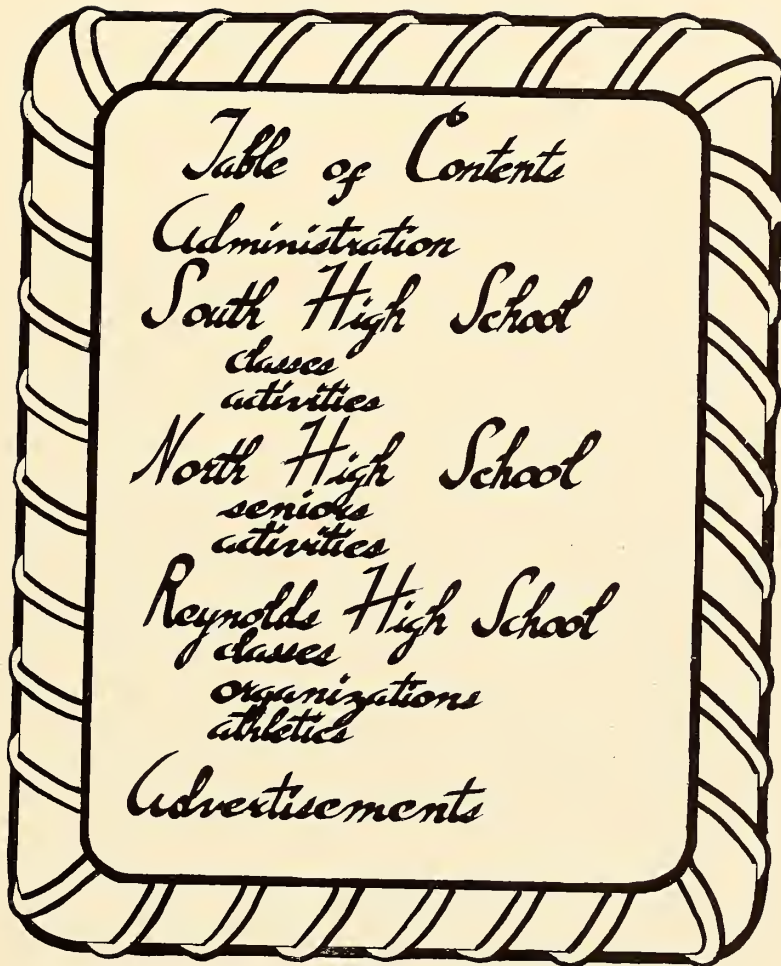 Table of Contents
Administration
South High School
classes
activities
North High School
seniors
activities
Reynolds High School
classes
organizations
athletics
Advertisements